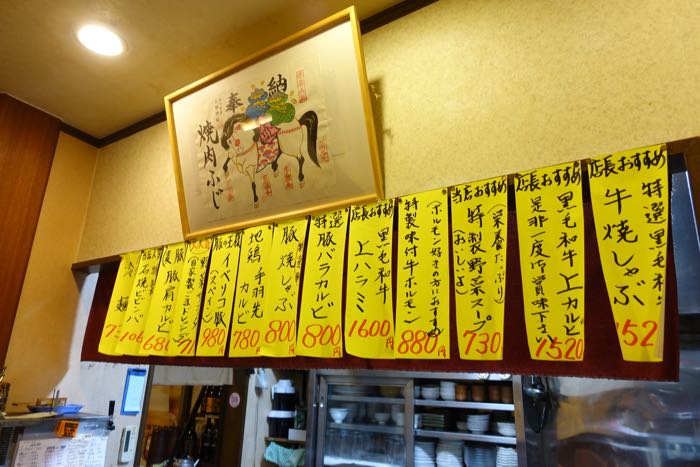 奉納
焼肉ふじ
店長おすすめ
特選黒毛和
牛焼しゃぶ
152
店長おすすめ
黒毛和牛上カルビ
是非一度御賞味下さい
1520
当店おすすめ
(栄養たっぷり)
特製野菜スープ
(おいしいよ)
730
(ホルモン好きの方におすすめ)
特製味付牛ホルモン
880円
店長おすすめ
黒毛和牛
上ハラミ
1600円
特選
豚バラカルビ
800円
豚焼しゃぶ
800円
地鶏手羽先
カルビ
780円
豚の王様
イベリコ豚
(スペイン)
980
豚肩カルビ
680
石焼ビビンバ
冷麺